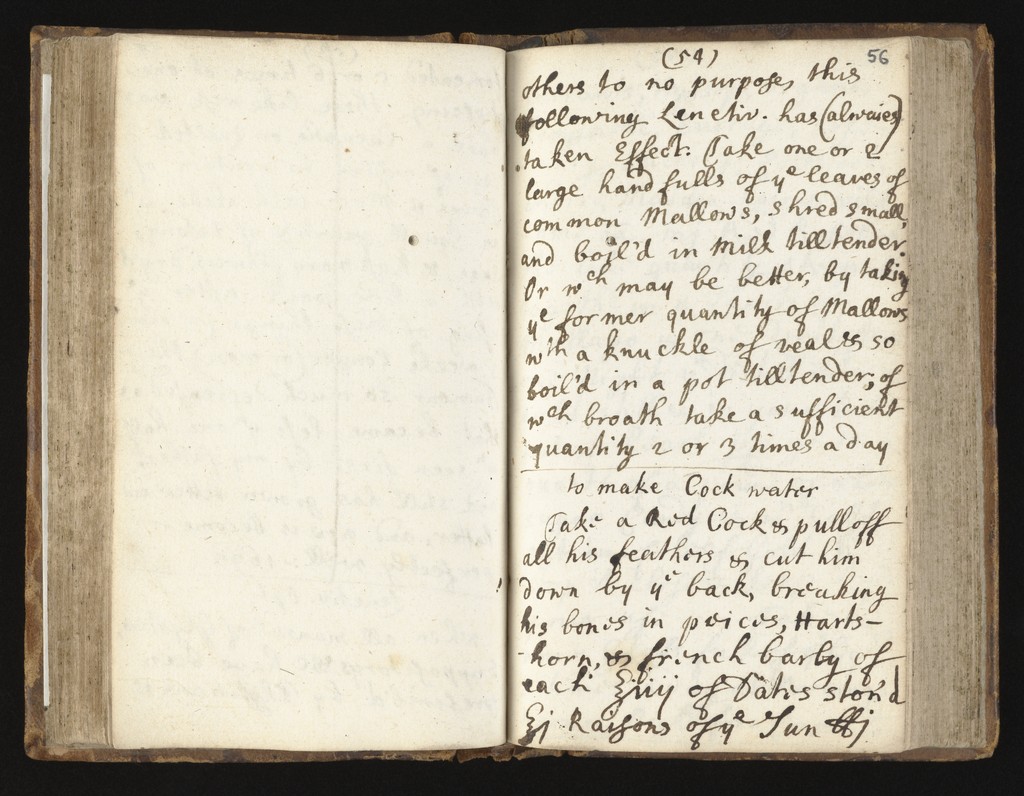 (54)
56
others to no purpose, this
following Lenetiv. has (alwaies)
taken Effect. Take one or 2
large handfulls of yᵉ leaves of
common Mallows, shred small,
and boil'd in Milk till tender.
Or wᶜʰ may be better, by taking
yᵉ former quantity of Mallows
wᵗʰ a knuckle of veal & so
boil'd in a pot till tender; of
wᶜʰ broath take a sufficient
quantity 2 or 3 times a day
to make Cock water
Take a Red Cock & pull off
all his feathers & cut him
down by yᵉ back, breaking
his bones in peices, Harts-
-horn, & french barby of
each ℥iiij of Dates ston'd
℥j Raisons of yᵉ Sun ℔j